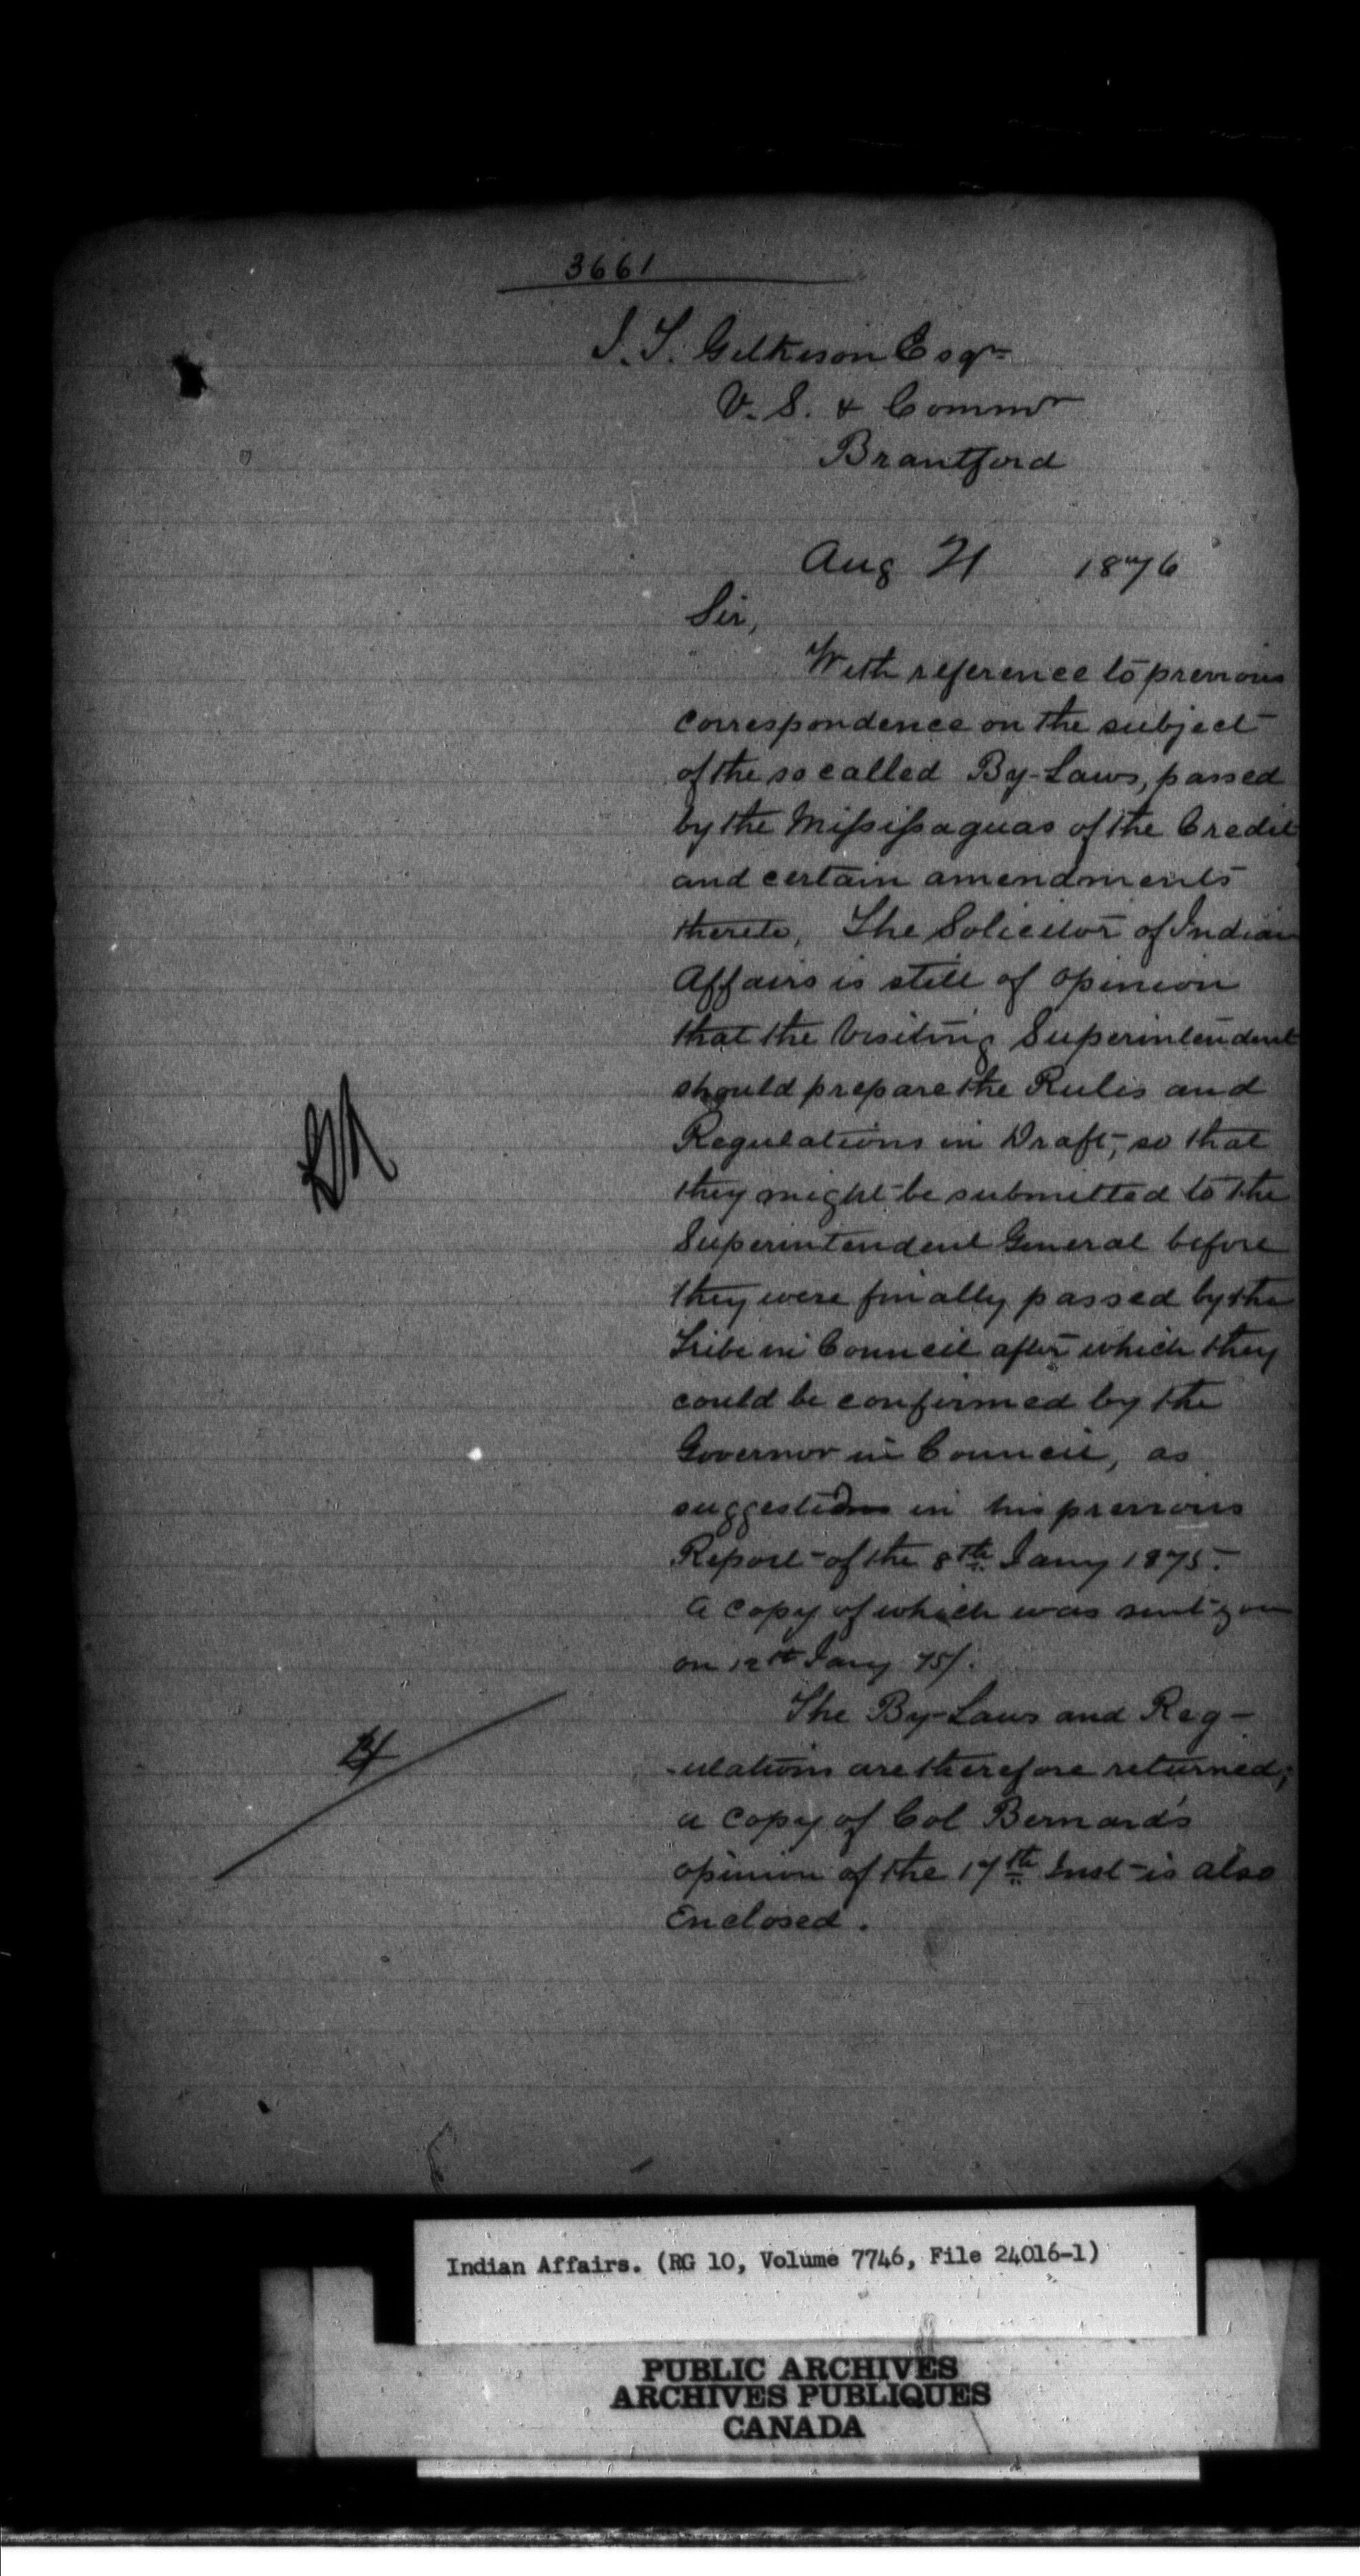 3661
J. T. Gilkison Esqr
V. S. & Commr
Brantford
Aug 21 1876
Sir,
With reference to previous
correspondence on the subject
of the so called By-Laws, passed
by the Mississaguas of the Credit
and certain amendments
thereto, The Solicitor of Indian
Affairs is still of opinion
that the Visiting Superintendent
should prepare the Rules and
Regulations in Draft, so that
they might be submitted to the
Superintendent General before
they were finally passed by the
Tribe in Council after which they
could be confirmed by the
Governor in Council, as
suggested in his previous
Report of the 8th Jany 1875.
A copy of which was sent you
on 12th Jany 75/.
The By-Laws and Reg-
-ulations are therefore returned;
a copy of Col Bernard's
opinion of the 17th Inst is also
Enclosed.
Indian Affairs. (RG 10, Volume 7746, File 24016-1)
PUBLIC ARCHIVES
ARCHIVES PUBLIQUES
CANADA